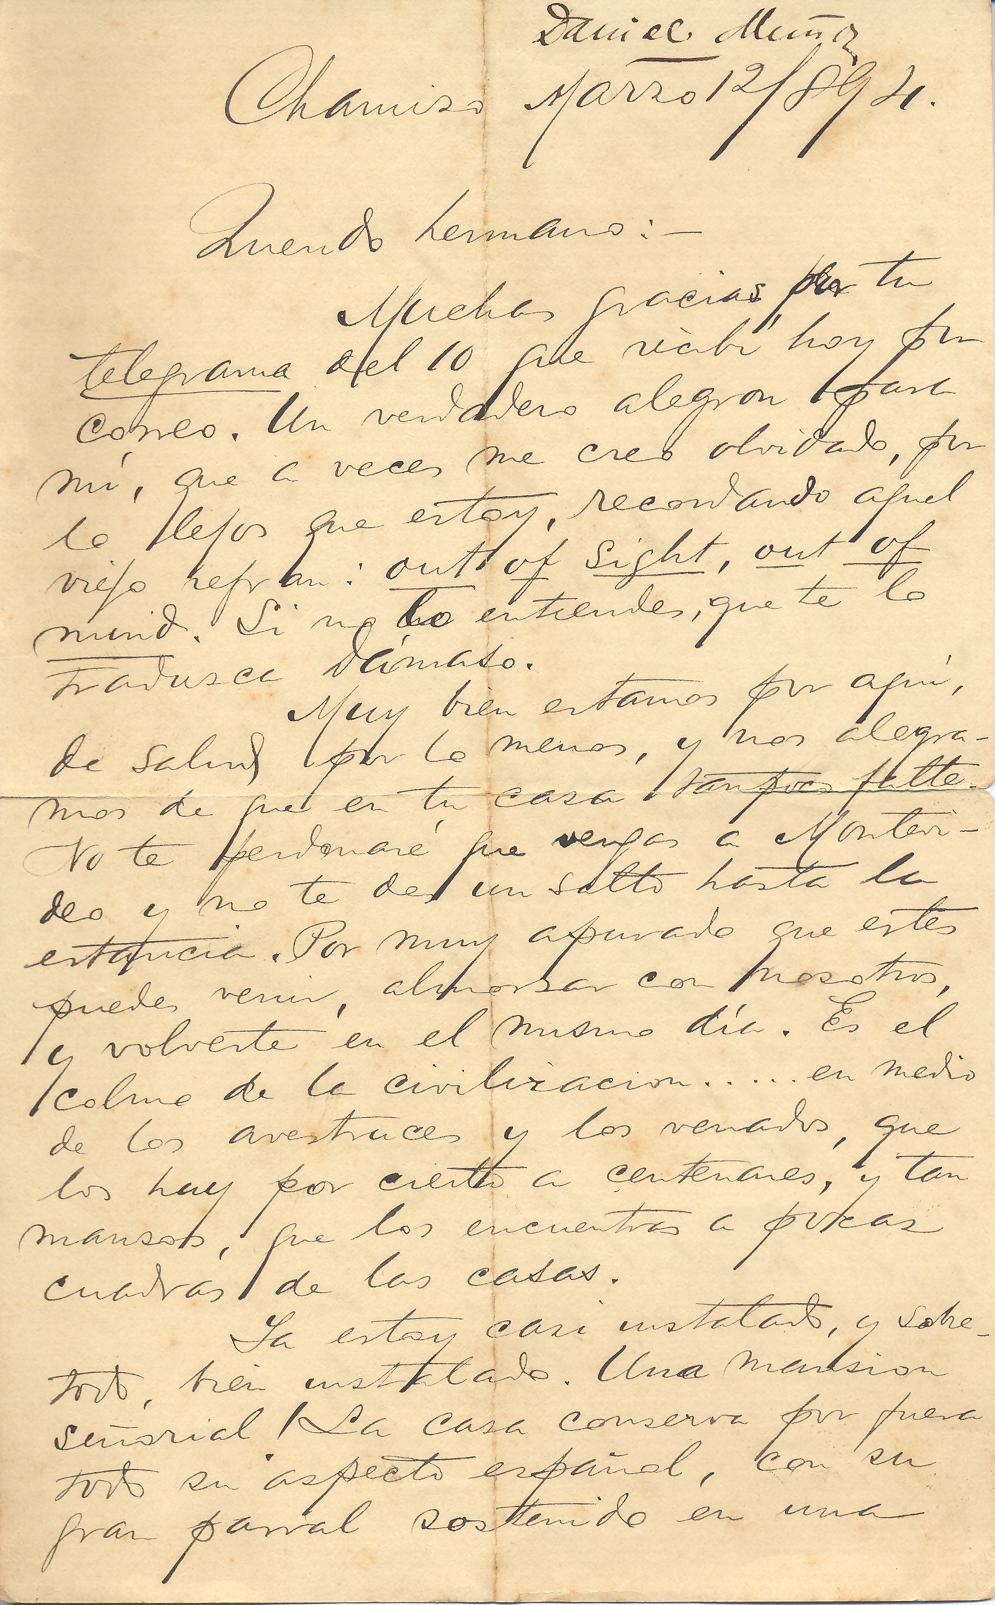 Daniel Muñoz
Chamizo Marzo 12/894.
Querido hermano:—
Muchas gracias por tu
telegrama del 10 que recibí hoy por
correo. Un verdadero alegron para
mí, que a veces me creo olvidado, por
lo lejos que estoy, recordando aquel
viejo refran: out of sight, out of
mind. Si no lo entiendes, que te lo
traduzca Dámaso.
Muy bien estamos por aquí,
de salud por lo menos, y nos alegra-
mos de que en tu casa tampoco falte.
No te perdonaré que vengas a Montevi-
deo y no te des un salto hasta la
estancia. Por muy apurado que estés
puedes venir, almorzar con nosotros,
y volverte en el mismo día. Es el
colmo de la civilizacion..... en medio
de los avestruces y los venados, que
los hay por cierto a centenares, y tan
mansos, que los encuentras a pocas
cuadras de las casas.
Ya estoy casi instalado, y sobre-
todo, bien instalado. Una mansion
señorial! La casa conserva por fuera
todo su aspecto español, con su
gran parral sostenido en una